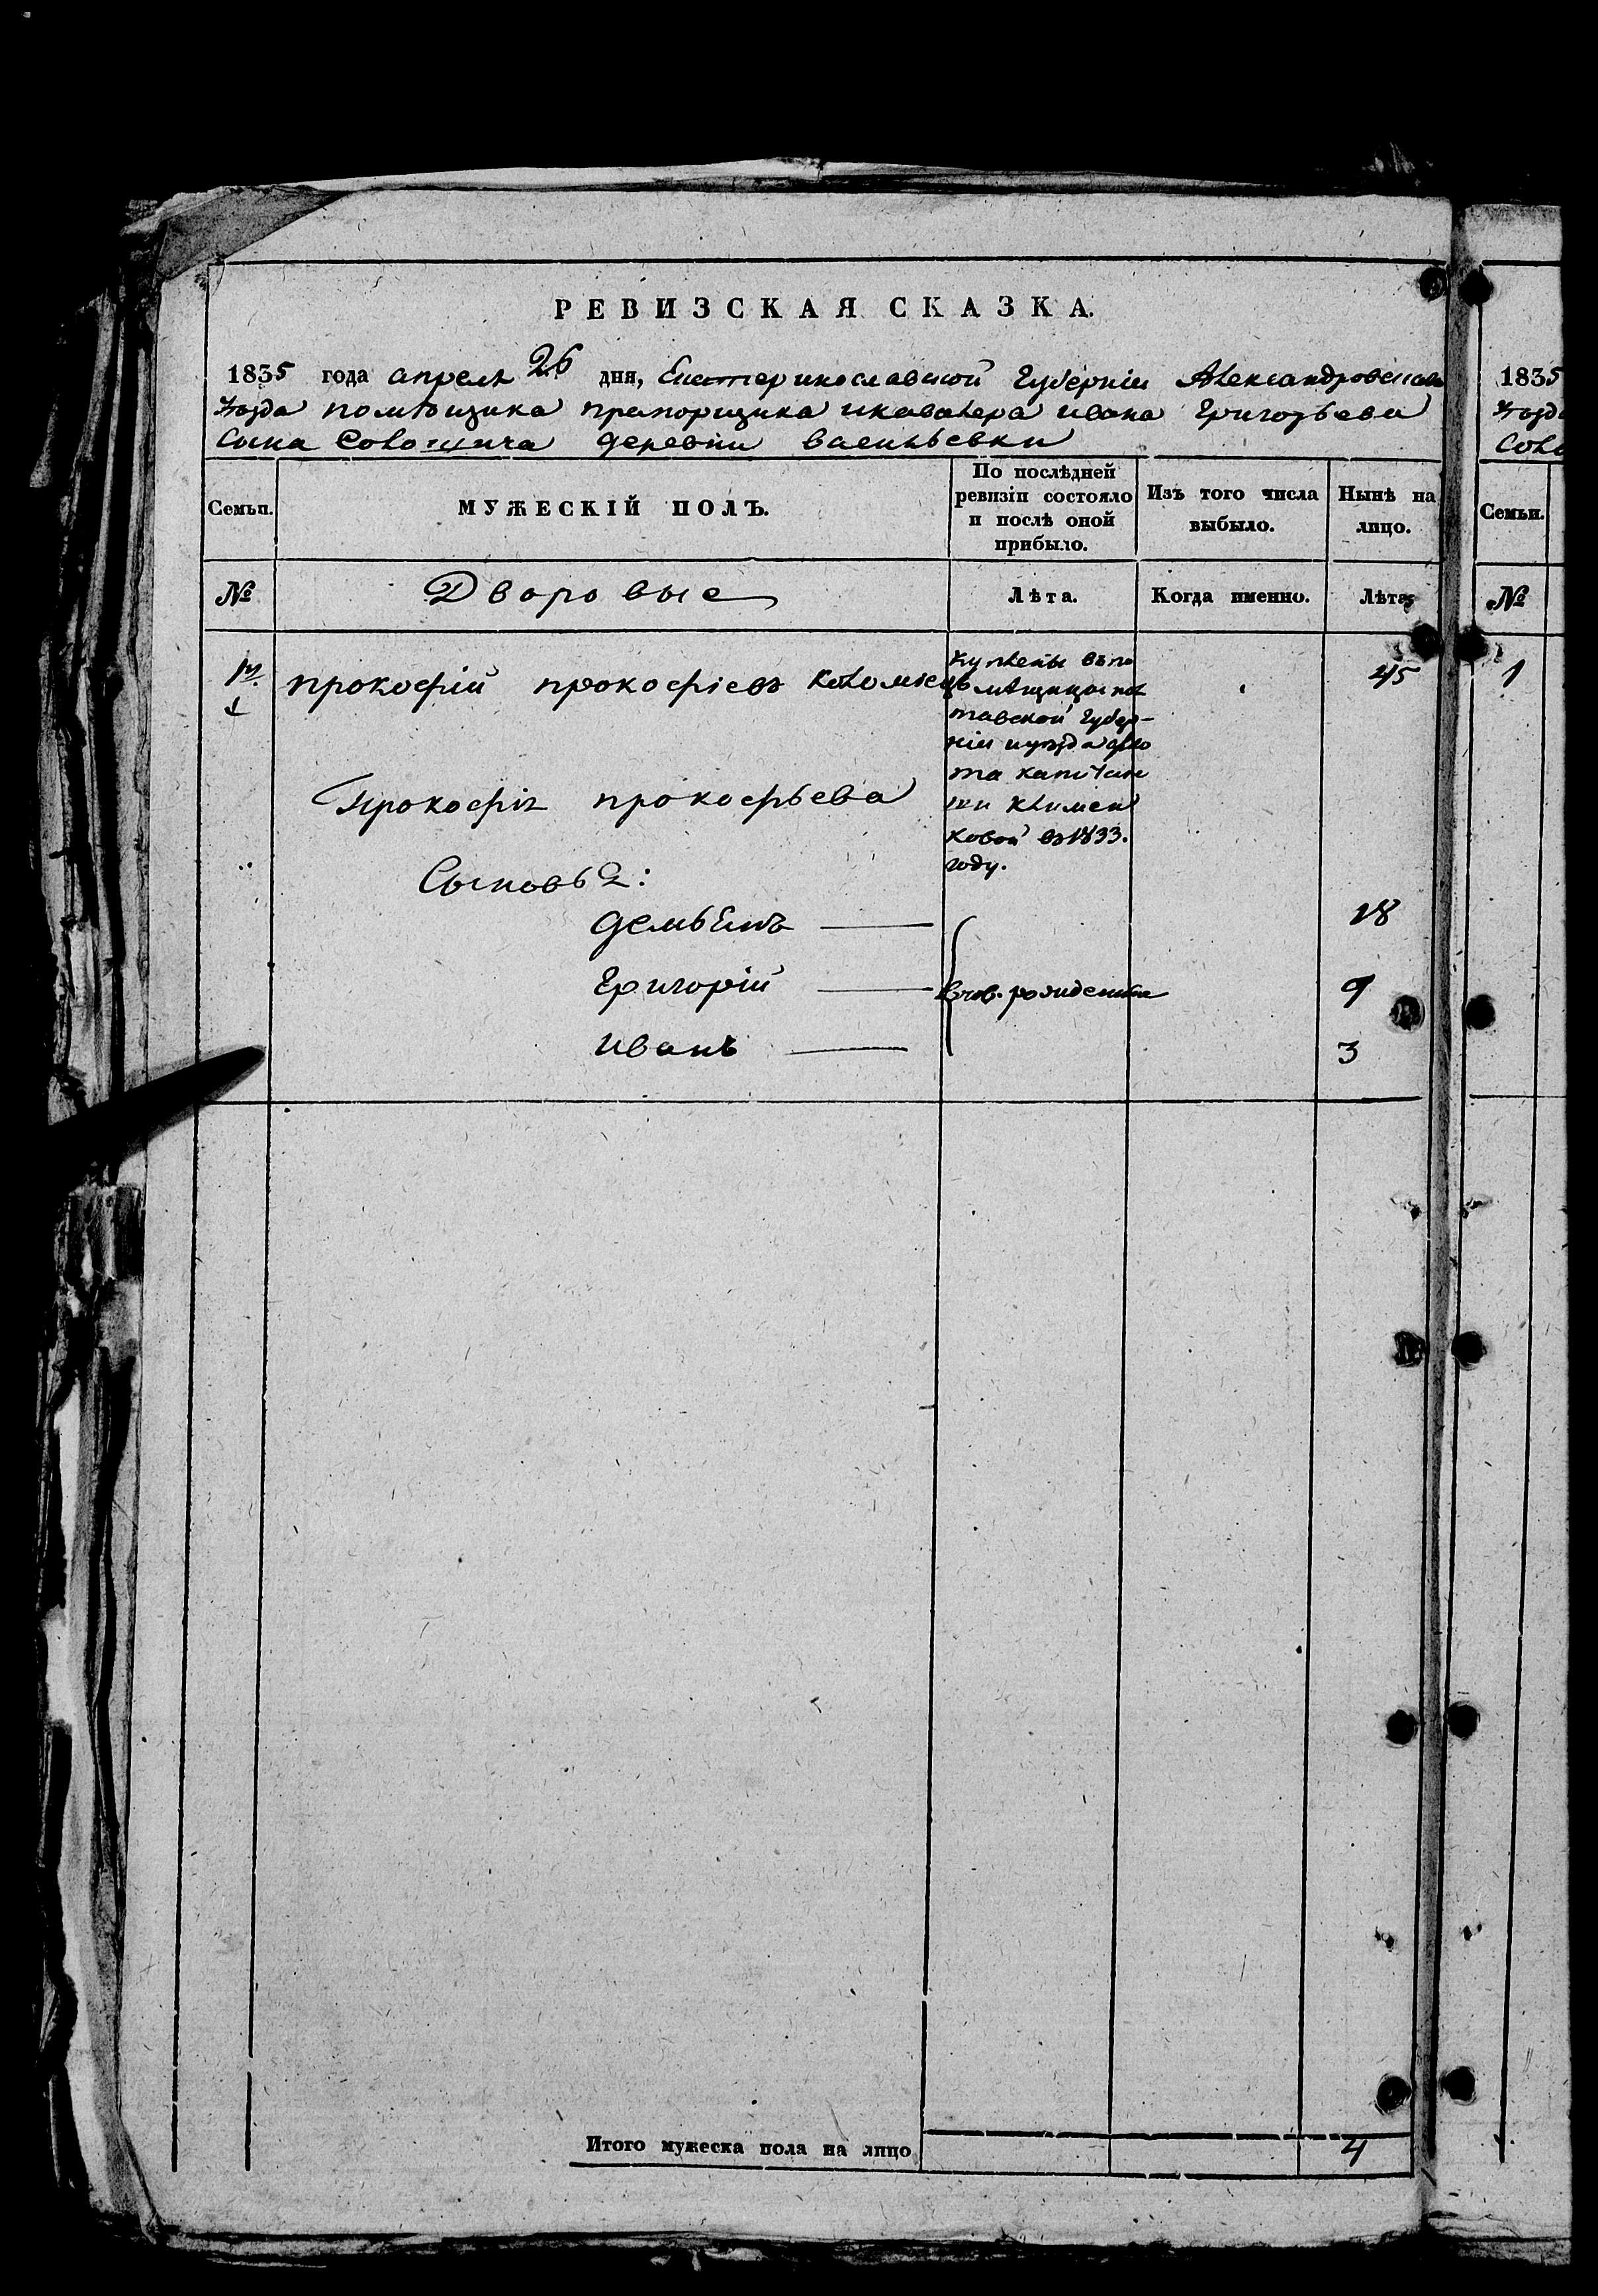 РЕВИЗСКАЯ СКАЗКА.
1835 года апреля 26 дня, Екатеринославской Губерніи Александровскаго
уѣзда помѣщика прапорщика и кавалера ивана Григорьева
Сына деревни васильевки
Семьи.
МУЖЕСКІЙ ПОЛЪ.
По послѣдней
ревизіи состояло
и послѣ оной
прибыло.
Изъ того числа
выбыло.
Нынѣ на
лицо.
№
Дворовые
Лѣта.
Когда именно.
Лѣта.
1
прокофій прокофіевъ Коломіецъ
45
куплены въ по
мѣщицы пол
тавской Губер-
ніи уѣзда
та капитан
ши Климен
ковой въ 1833.
году.
Прокофія прокофьева
Сыновья:
демьянъ
18
Григорій
рождения
9
иванъ
3
Итого мужеска пола на лицо
4
1835
уѣзд
Семьи.
№
1